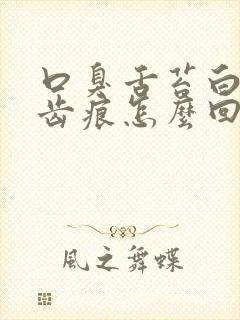 口臭舌苔白
齿痕怎麼回
風之舞蝶